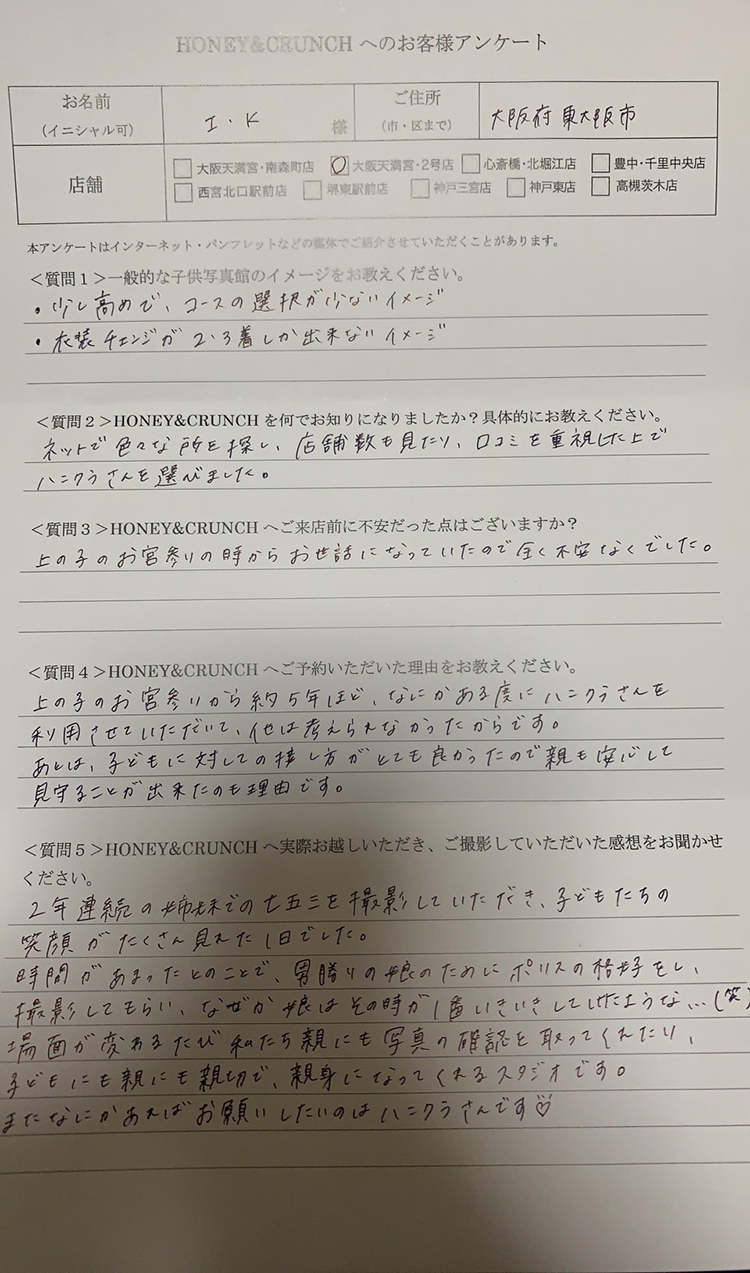 HONEY&CRUNCH へのお客様アンケート
お名前
(イニシャル可)
I・K 様
ご住所
(市・区まで)
大阪府東大阪市
店舗
大阪天満宮・南森町店 大阪天満宮・2号店 心斎橋・北堀江店 豊中・千里中央店
西宮北口駅前店 堺東駅前店 神戸三宮店 神戸東店 高槻茨木店
本アンケートはインターネット・パンフレットなどの媒体でご紹介させていただくことがあります。
<質問1>一般的な子供写真館のイメージをお教えください。
・少し高めで、コースの選択が少ないイメージ
・衣装チェンジが2・3着しか出来ないイメージ
<質問2>HONEY&CRUNCH を何でお知りになりましたか?具体的にお教えください。
ネットで色々な所を探し、店舗数も見たり、口コミを重視した上で
ハニクラさんを選びました。
<質問3>HONEY&CRUNCH へご来店前に不安だった点はございますか?
上の子のお宮参りの時からお世話になっていたので全く不安なくでした。
<質問4>HONEY&CRUNCH へご予約いただいた理由をお教えください。
上の子のお宮参りから約5年ほど、なにかある度にハニクラさんを
利用させていただいて、他は考えられなかったからです。
あとは、子どもに対しての接し方がとても良かったので親も安心して
見守ることが出来たのも理由です。
<質問5>HONEY&CRUNCH へ実際お越しいただき、ご撮影していただいた感想をお聞かせ
ください。
2年連続の姉妹での七五三を撮影していただき、子どもたちの
笑顔がたくさん見れた1日でした。
時間があまったとのことで、男勝りの娘のためにポリスの格好をし、
撮影してもらい、なぜか娘はその時が1番いきいきしてたような…(笑)
場面が変わるたび私たち親にも写真の確認を取ってくれたり、
子どもにも親にも親切で、親身になってくれるスタジオです。
またなにかあればお願いしたいのはハニクラさんです♡